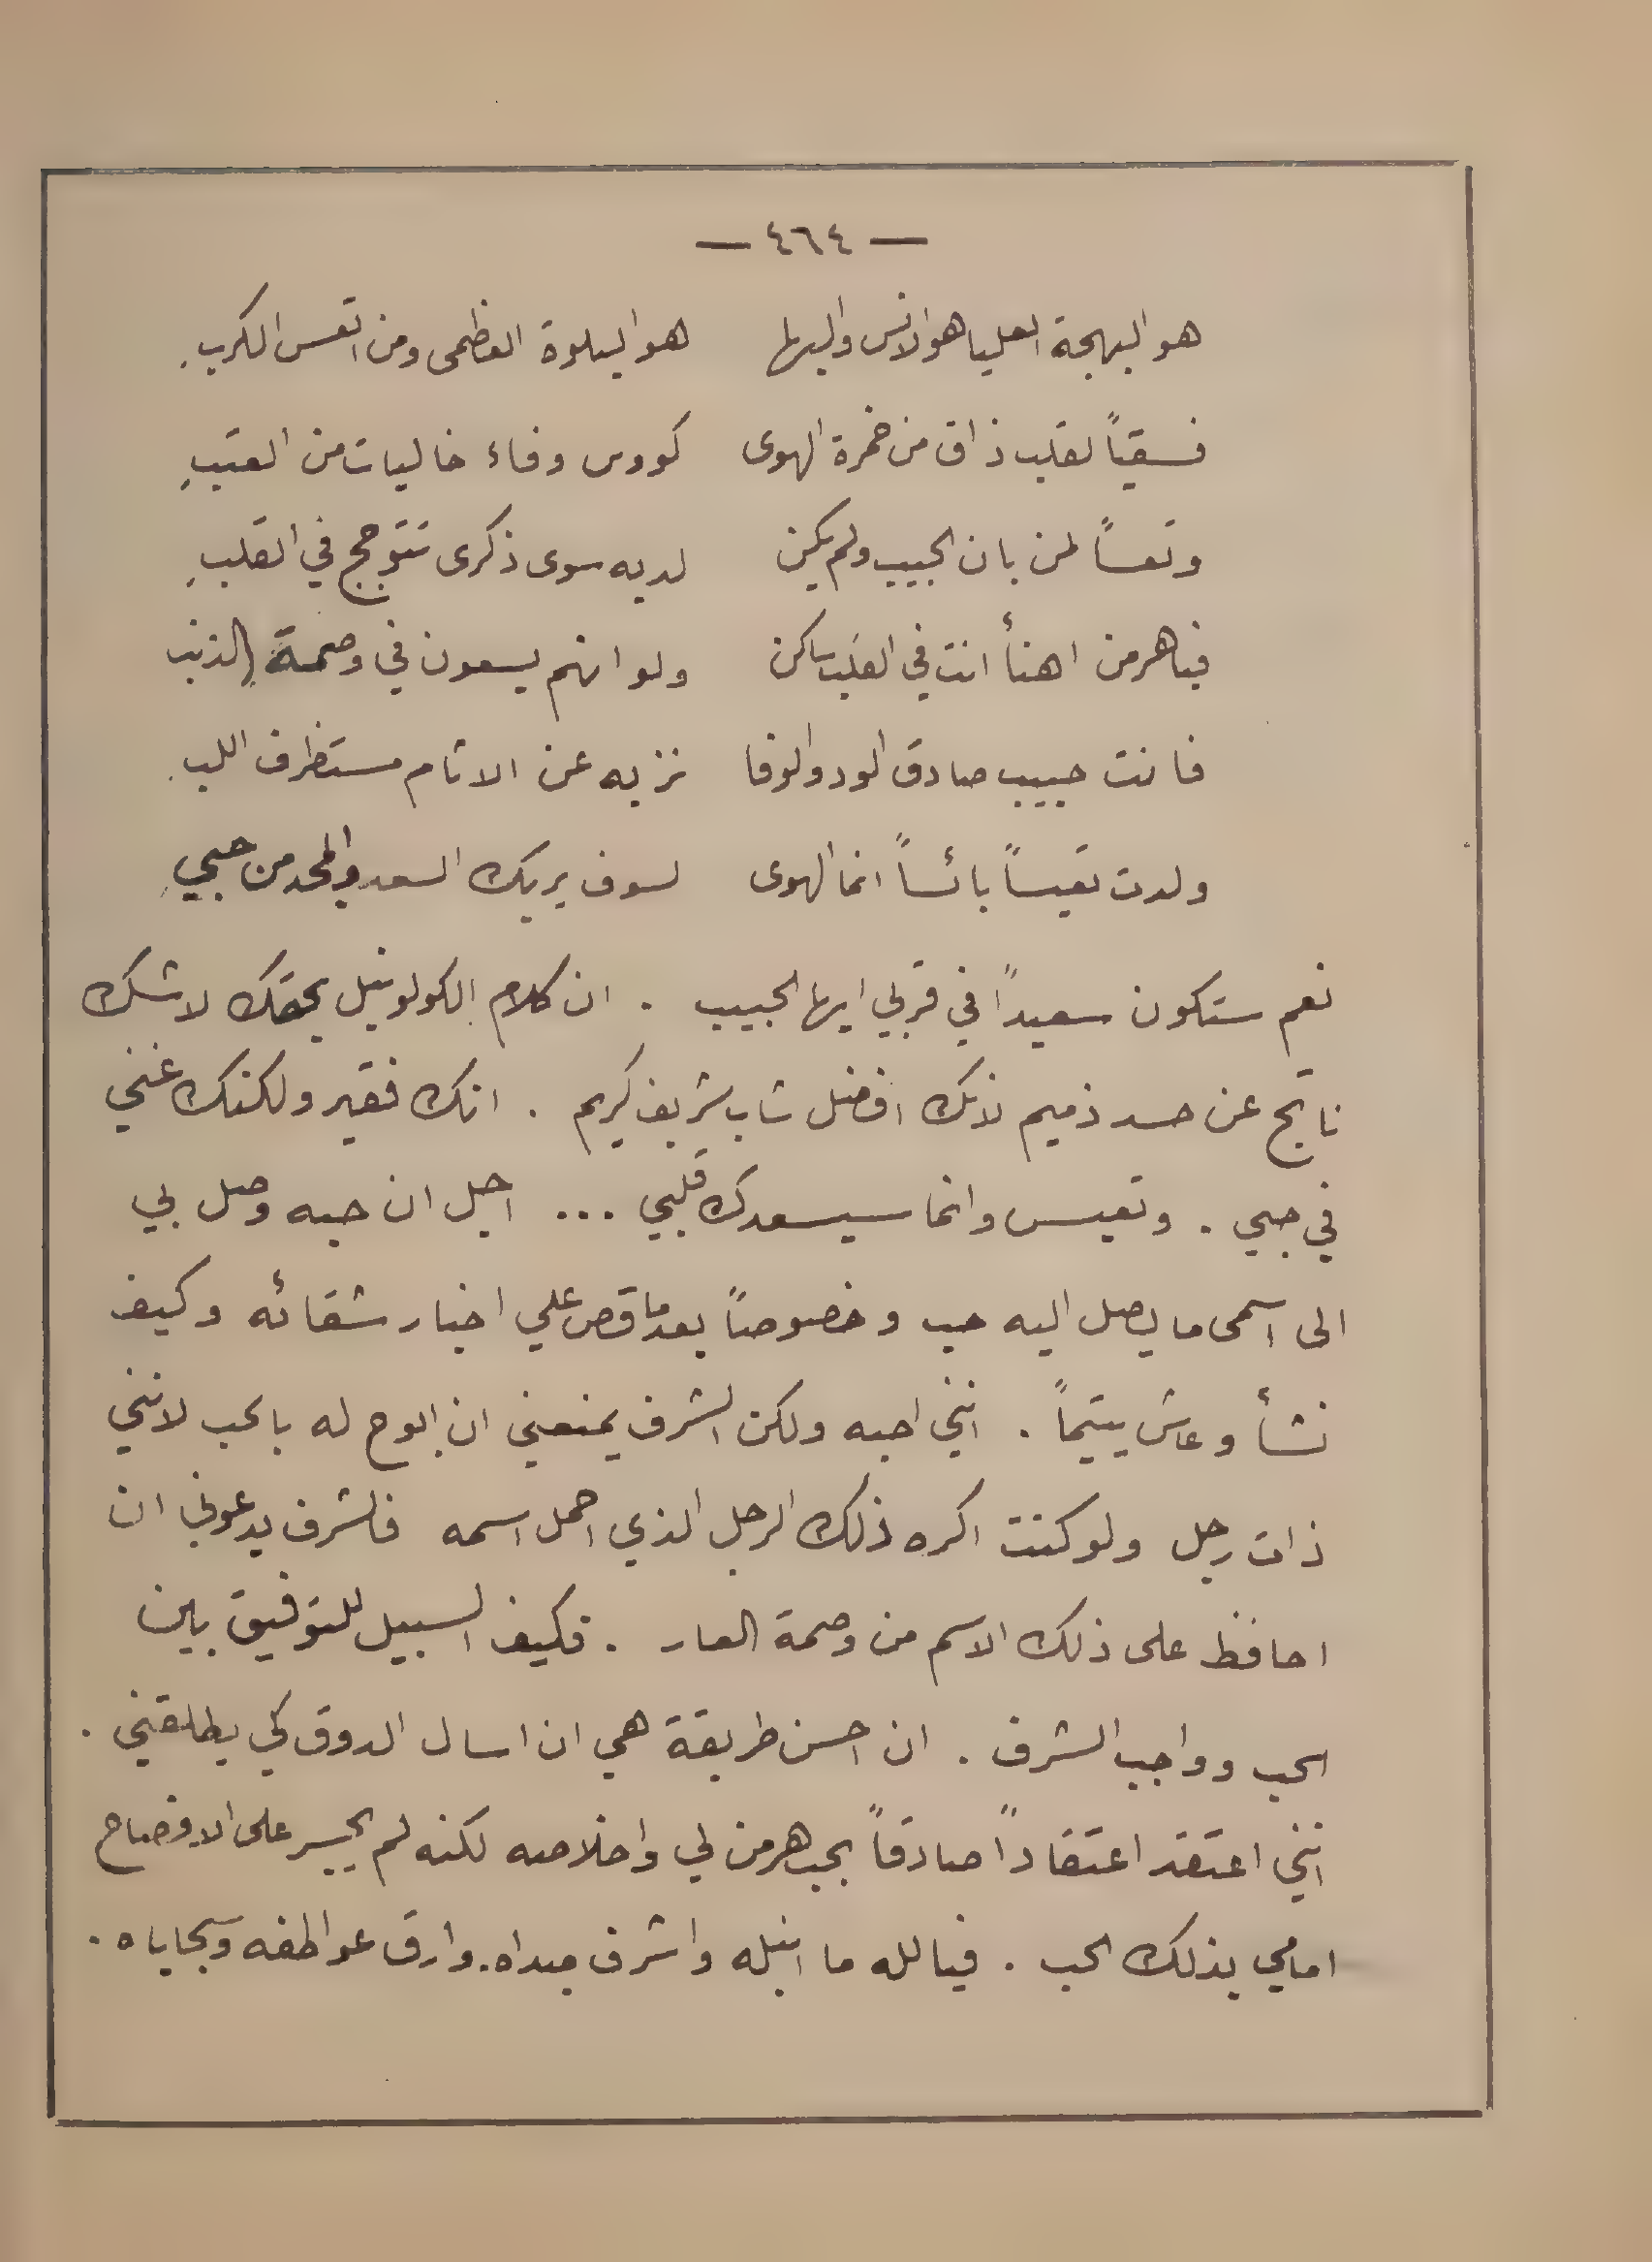 — ٤٦٤ —
هو البهجة العليا هو الانس والبها هو السلوة العظمى ومن اتعس الكرب
فسقياً لقلب ذاق من خمرة الهوى كووس وفاء خاليات من العتبِ
وتعساً لمن بان الحبيب ولم يكن لديه سوى ذكرى تتوجج في القلبِ
فيا هرمن اهنأ انت في القلب ساكن ولو انهم يسعون في وصمة الذنب
فانت حبيب صادق الود والوفا نزيه عن الاثام مستظرف اللب
ولدت تعيساً بائساً انما الهوى لسوف يريك السعد والمجد من حبي
نعم ستكون سعيداً في قربي ايها الحبيب . ان كلام الكولونيل بحقك لا شك
ناتج عن حسد ذميم لانك افضل شاب شريف كريم . انك فقير ولكنك غني
في حبي . وتعيس وانما سيسعدك قلبي ... اجل ان حبه وصل بي
الى اسمى ما يصل اليه حب وخصوصاً بعد ما قص علي اخبار شقائه وكيف
نشأ وعاش يتيماً . انني احبه ولكن الشرف يمنعني ان ابوح له بالحب لانني
ذات رجل ولو كنت اكره ذلك الرجل الذي احمل اسمه فالشرف يدعوني ان
احافظ على ذلك الاسم من وصمة العار . فكيف السبيل للتوفيق بين
الحب وواجب الشرف . ان احسن طريقة هي ان اسال الدوق كي يطلقني .
انني اعتقد اعتقاداً صادقاً بحب هرمن لي واخلاصه لكنه لم يجسر على الافصاح
امامي بذلك الحب . فيا لله ما انبله واشرف مبداه . وارق عواطفه وسجاياه .